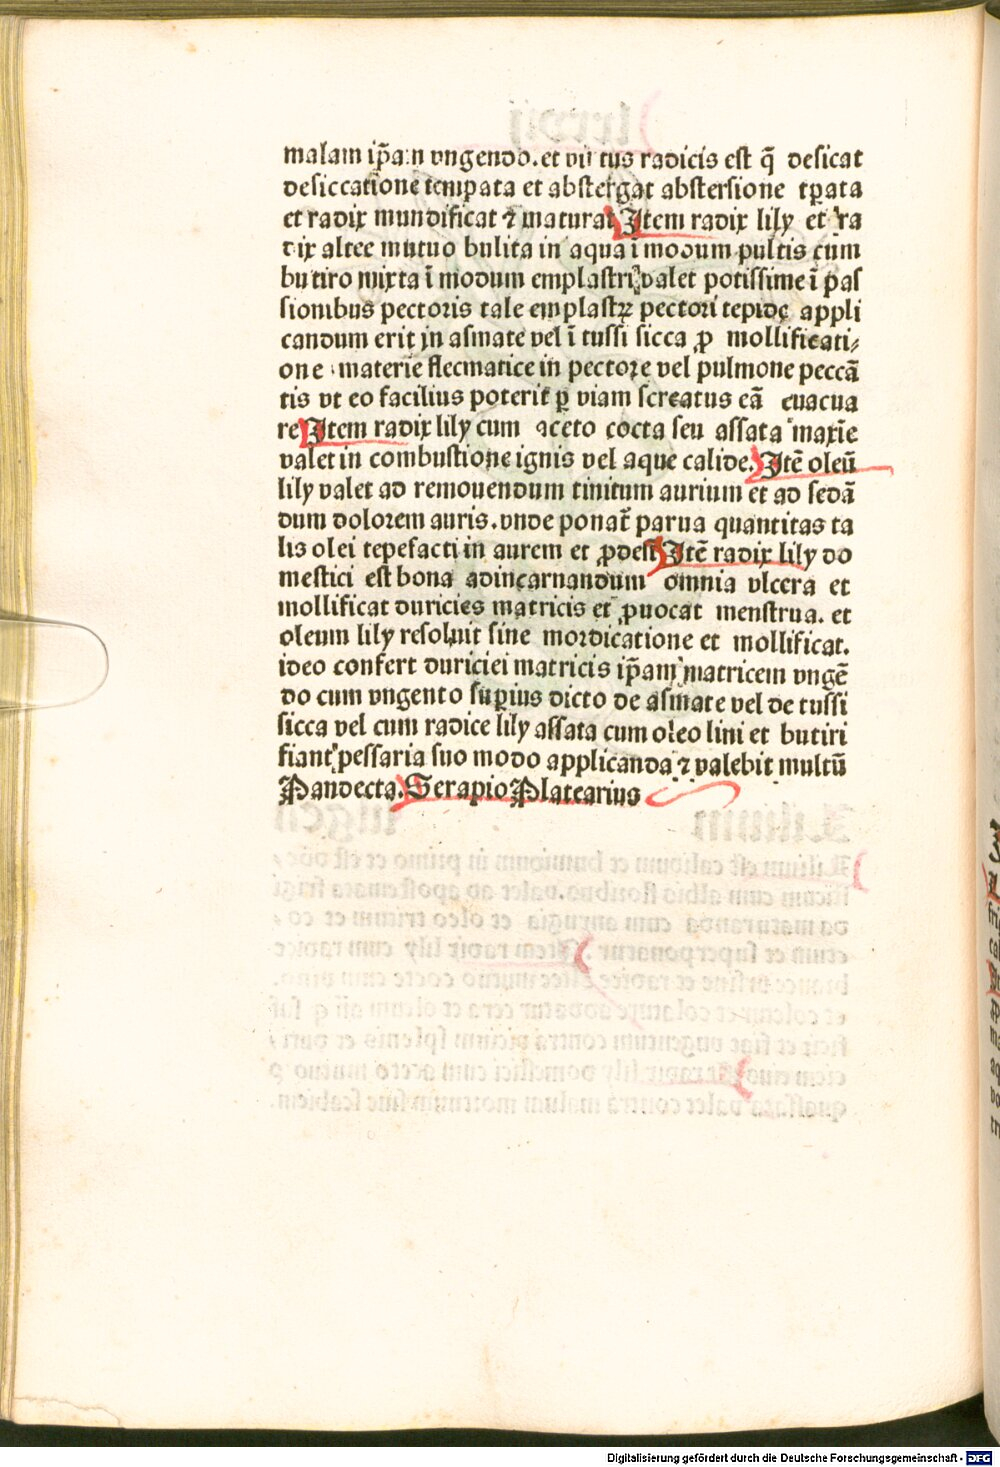 malam ip̃am vngendo. et virtus radicis est q̃ desicat
desiccatione temp̱ata et abstergat abstersione tp̱ata
et radix mundificat ⁊ maturat Item radix lily et ra
dix altee mutuo bulita in aqua ī modum pultis cum
butiro mixta ī modum emplastri valet potissime ī pas
sionibus pectoris tale emplastꝝ pectori tepide appli
candum erit in asmate vel ī tussi sicca ꝓ mollificati⸗
one materie flecmatice in pectore vel pulmone peccā
tis vt eo facilius poterit ꝑ viam screatus eā euacua
re Item radix lily cum aceto cocta seu assata maxīe
valet in combustione ignis vel aque calide. Itē oleū
lily valet ad remouendum tinitum aurium et ad sedā
dum dolorem auris. vnde ponat᷑ parua quantitas ta
lis olei tepefacti in aurem et ꝓdest Itē radix lily do
mestici est bona adincarnandum omnia vlcera et
mollificat duricies matricis et ꝓuocat menstrua. et
oleum lily resoluit sine mordicatione et mollificat.
ideo confert duriciei matricis ip̃am matricem vngē
do cum vngento suꝑius dicto de asmate vel de tussi
sicca vel cum radice lily assata cum oleo lini et butiri
fiant pessaria suo modo applicanda ⁊ valebit multū
Pandecta. Serapio Platearius
Digitalisierung gefördert durch die Deutsche Forschungsgemeinschaft - DFG